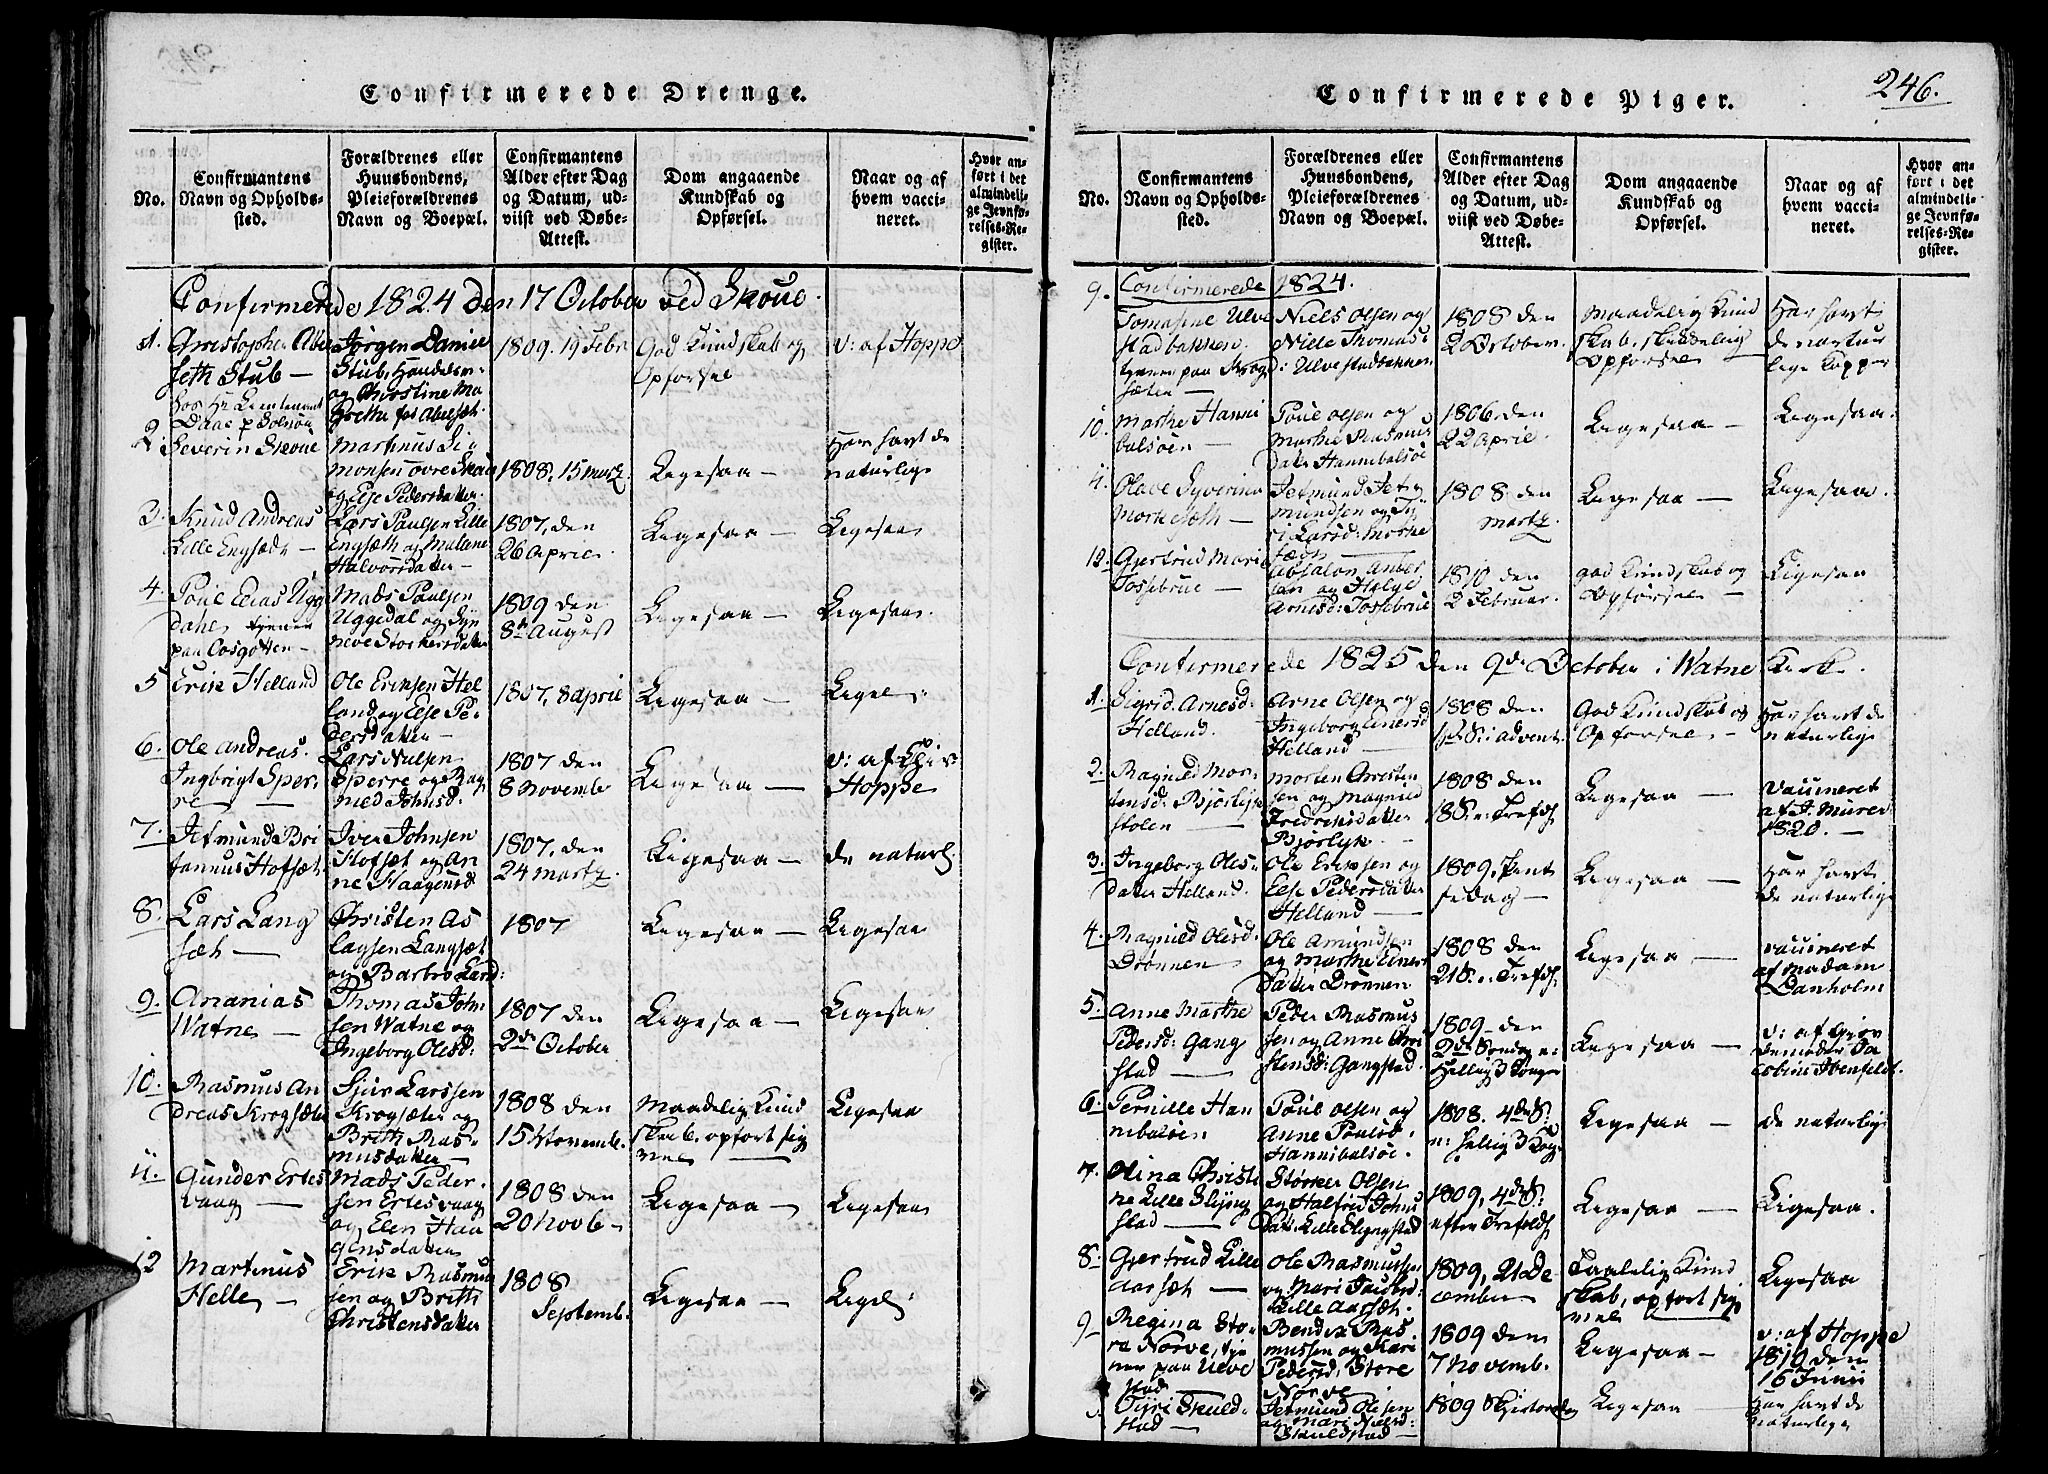 Confirmerede Drenge.
No.
Confirmantens Navn og Opholdssted.
Forældrenes eller Huusbondens, Pleieforældrenes Navn og Boepæl.
Confirmantens Alder efter Dag og Datum, udviist ved Døbe-Attest.
Dom angaaende Kundskab og Opførsel.
Naar og af hvem vaccineret.
Hvor anført i det almindelige Jevnførelses-Register.
Confirmerede 1824 den 17 October ved Skoue.
1. Christopher Abel
seth Stub —
hos Hr Lieutenant
Daae p Solnør
Jørgen Daniel
Stub, Handelsm:
og Christine Ma
grethe fød Abelseth.
1809. 19 Febr
God Kundskab og
Opførsel
v: af Hoppe
2. Severin Skoue
Martinus Si
monsen øvre Skoue
og Else Pedersdatter.
1808, 15 Martz.
Ligesaa —
Har havt de
naturlige
3. Knud Andreas
Lille Engsæth —
Lars Paulsen Lille
Engsæth og Malene
Halvorsdatter —
1807, den
26 April.
Ligesaa —
Ligesaa
4. Poul Elias Ugg
dahl tjener
paa
Mads Poulsen
Uggedal og Syn
neve Storkersdatter
1809 den
8de August
Ligesaa —
Ligesaa.
5 Erik Helland
Ole Eriksen Hel
land og Else Pe
dersdatter —
1807, 8 April
Ligesaa —
Liges:
6. Ole Andreas
Ingbrigt Sper
re —
Lars Nilsen
Sperre og Rag
nild Johnsd.
1807 den
8 Novembr
Ligesaa —
v: af Chir
Hoppe
7. Jetmund Bri
tannus Hofsæt.
Iver Johnsen
Hofsæt og An
ne Haagensd
1807, den
24 Martz.
Ligesaa —
de naturl.
8. Lars Lang
sæth —
Christen As
lagsen Langsæt
og Barbro Larsd:
1807
Ligesaa —
Ligesaa
9. Ananias
Watne —
Thomas John
sen Watne og
Ingeborg Olesd:
1807 den
2de October
Ligesaa —
Ligesaa
10. Rasmus An
dreas Krogsæter
Sjur Larssen
Krogsæter og
Brith Ras
musdatter —
1808 den
15 Novemb.
Maadelig Kund
skab, opført sig
vel —
Ligesaa
11. Gunder Ertes
vaag —
Mads Peder
sen Ertesvaag
og Elen Haa
gensdatter
1808 den
20 Novb —
Ligesaa —
Ligesaa
12 Martinus
Helle —
Erik Rasmus
sen og Brith
Christensdatter
1808
Septemb.
Ligesaa —
Liges:
Confirmerede Piger.
246.
No.
Confirmantens Navn og Opholdssted.
Forældrenes eller Huusbondens, Pleieforældrenes Navn og Boepæl.
Confirmantens Alder efter Dag og Datum, udviist ved Døbe-Attest.
Dom angaaende Kundskab og Opførsel.
Naar og af hvem vaccineret.
Hvor anført i det almindelige Jevnførelses-Register.
Confirmerede 1824.
9. Tomasine Ulve
stadbakken.
tjener paa Krog
sæten —
Niels Olsen og
Nille Thomas
d: Ulvestadbakken
1808 den
2 October.
Maadelig Kund
skab, skikkelig
Opførsel
Har havt
de natur
lige Kopper
10. Marthe Hanni
balsøen —
Poul Olsen og
Marthe Rasmus
datr Hannibalsøe
1806 den
22 April.
Ligesaa —
Ligesaa.
11. Olave Syverine
Morkesæth —
Jetmund Jet
mundsen og Sy
ri Larsd: Morke
sæth
1808 den
Martz.
Ligesaa —
Ligesaa.
12. Gjertrud Marie
Tossebrue —
Absalon Ander
sen og Helge
Arnesd: Tossebrue
1810 den
2 Februar.
god Kundskab og
Opførsel —
Ligesaa
Confirmerede 1825 den 9de October i Watne Kirk.
1. Sigrid Arnesd:
Helland.
Arne Olsen og
Ingeborg Einersd
Helland —
1808 den
1ste S: i Advent
God Kundskab og
Opførsel —
Har havt de
naturlige
2. Ragnild Mor
tensd: Bjørlyk
stølen —
Morten Christen
sen og Magnild
Fredriksdatter
Bjørlyk.
1808 den
18 S: e: Trefdh
Ligesaa —
vaccineret
af J. Murer
1820. —
3. Ingeborg Oles
datter Helland.
Ole Eriksen og
Else Pedersdatter
Helland —
1809, Skjent
sedag —
Ligesaa —
Har havt
de naturlige
4. Ragnild Olesd:
Drønnen
Ole Amundsen
og Marthe Einers
datter Drønnen
1808 den
21 S. e: Trefdh.
Ligesaa —
vaccineret
af Madam
Danholm
5. Anne Marthe
Pedersd: Gang
stad —
Peder Rasmus
sen og Anne Chri
stensd: Gangstad.
1809 den
2de Søndag e:
Hellig 3 Konger
Ligesaa —
v: af Gjor
demoder Ja
cobine Ibenfeldt.
6. Pernille Han
nibalsøen
Poul Olsen og
Anne Poulsd:
Hannibalsøe.
1808. 4de S:
e: hellig 3 Kong
Ligesaa —
de naturlig
7. Olina Christi
ne Lille Slyng
stad —
Størker Olsen
og Halfrid Johns
datr Lille Slyngstad
1809, 4de S:
efter Trefoldh
Ligesaa —
Ligesaa.
8. Gjertrud Lille
aarsæt —
Ole Rasmussen
og Mari
Lille Aarsæt.
1809, 21 De
cember —
Taalelig Kund
skab, opført sig
vel —
Ligesaa
9 Regina Sto
re Norve, tje
ner paa Ulve
stad
Bendix Ras
mussen og Kari
Pedersd: Store
Norve
1809 den
7 Novemb.
Ligesaa —
v: af Hoppe
1810 den
16 Junii
Siri Skuld
stad —
Jetmund Olsen
og Mari Nielsd:
Skuldstad —
1809
Ligesaa —
Har havt de
naturlige